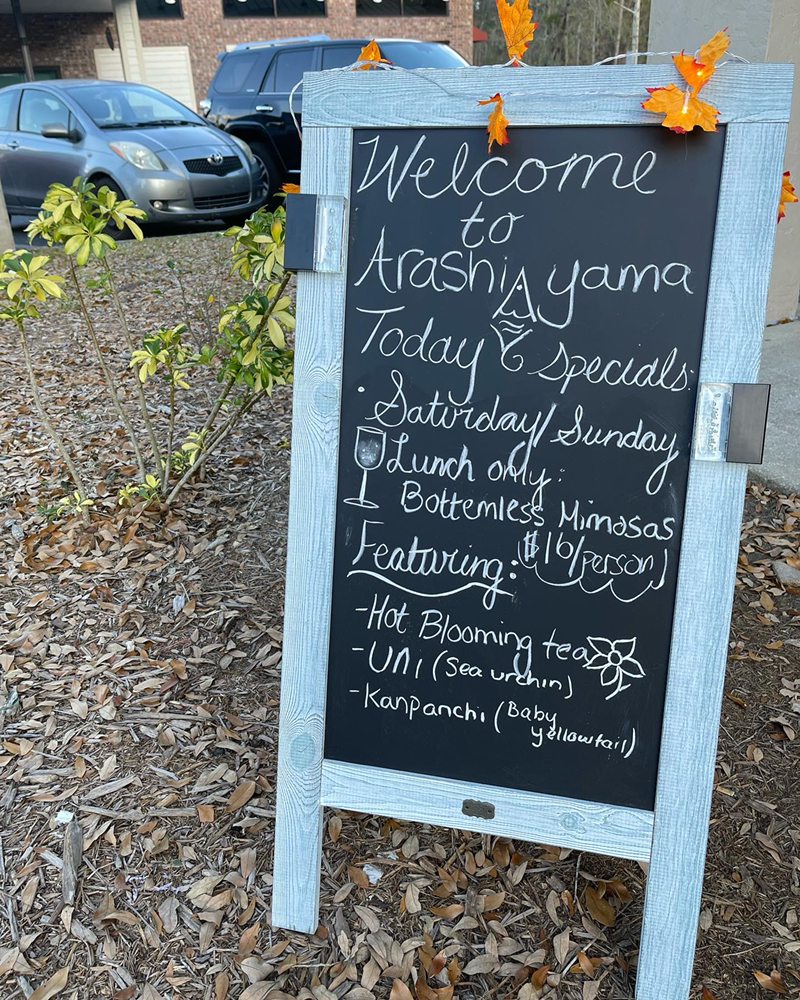 Welcome
to
Arashiyama
Today specials:
• Saturday/Sunday
Lunch only:
Bottemless Mimosas
$16/person)
Featuring:
-Hot Blooming tea
-Uni (Sea urchin)
-Kanpanchi (Baby
yellowtail)